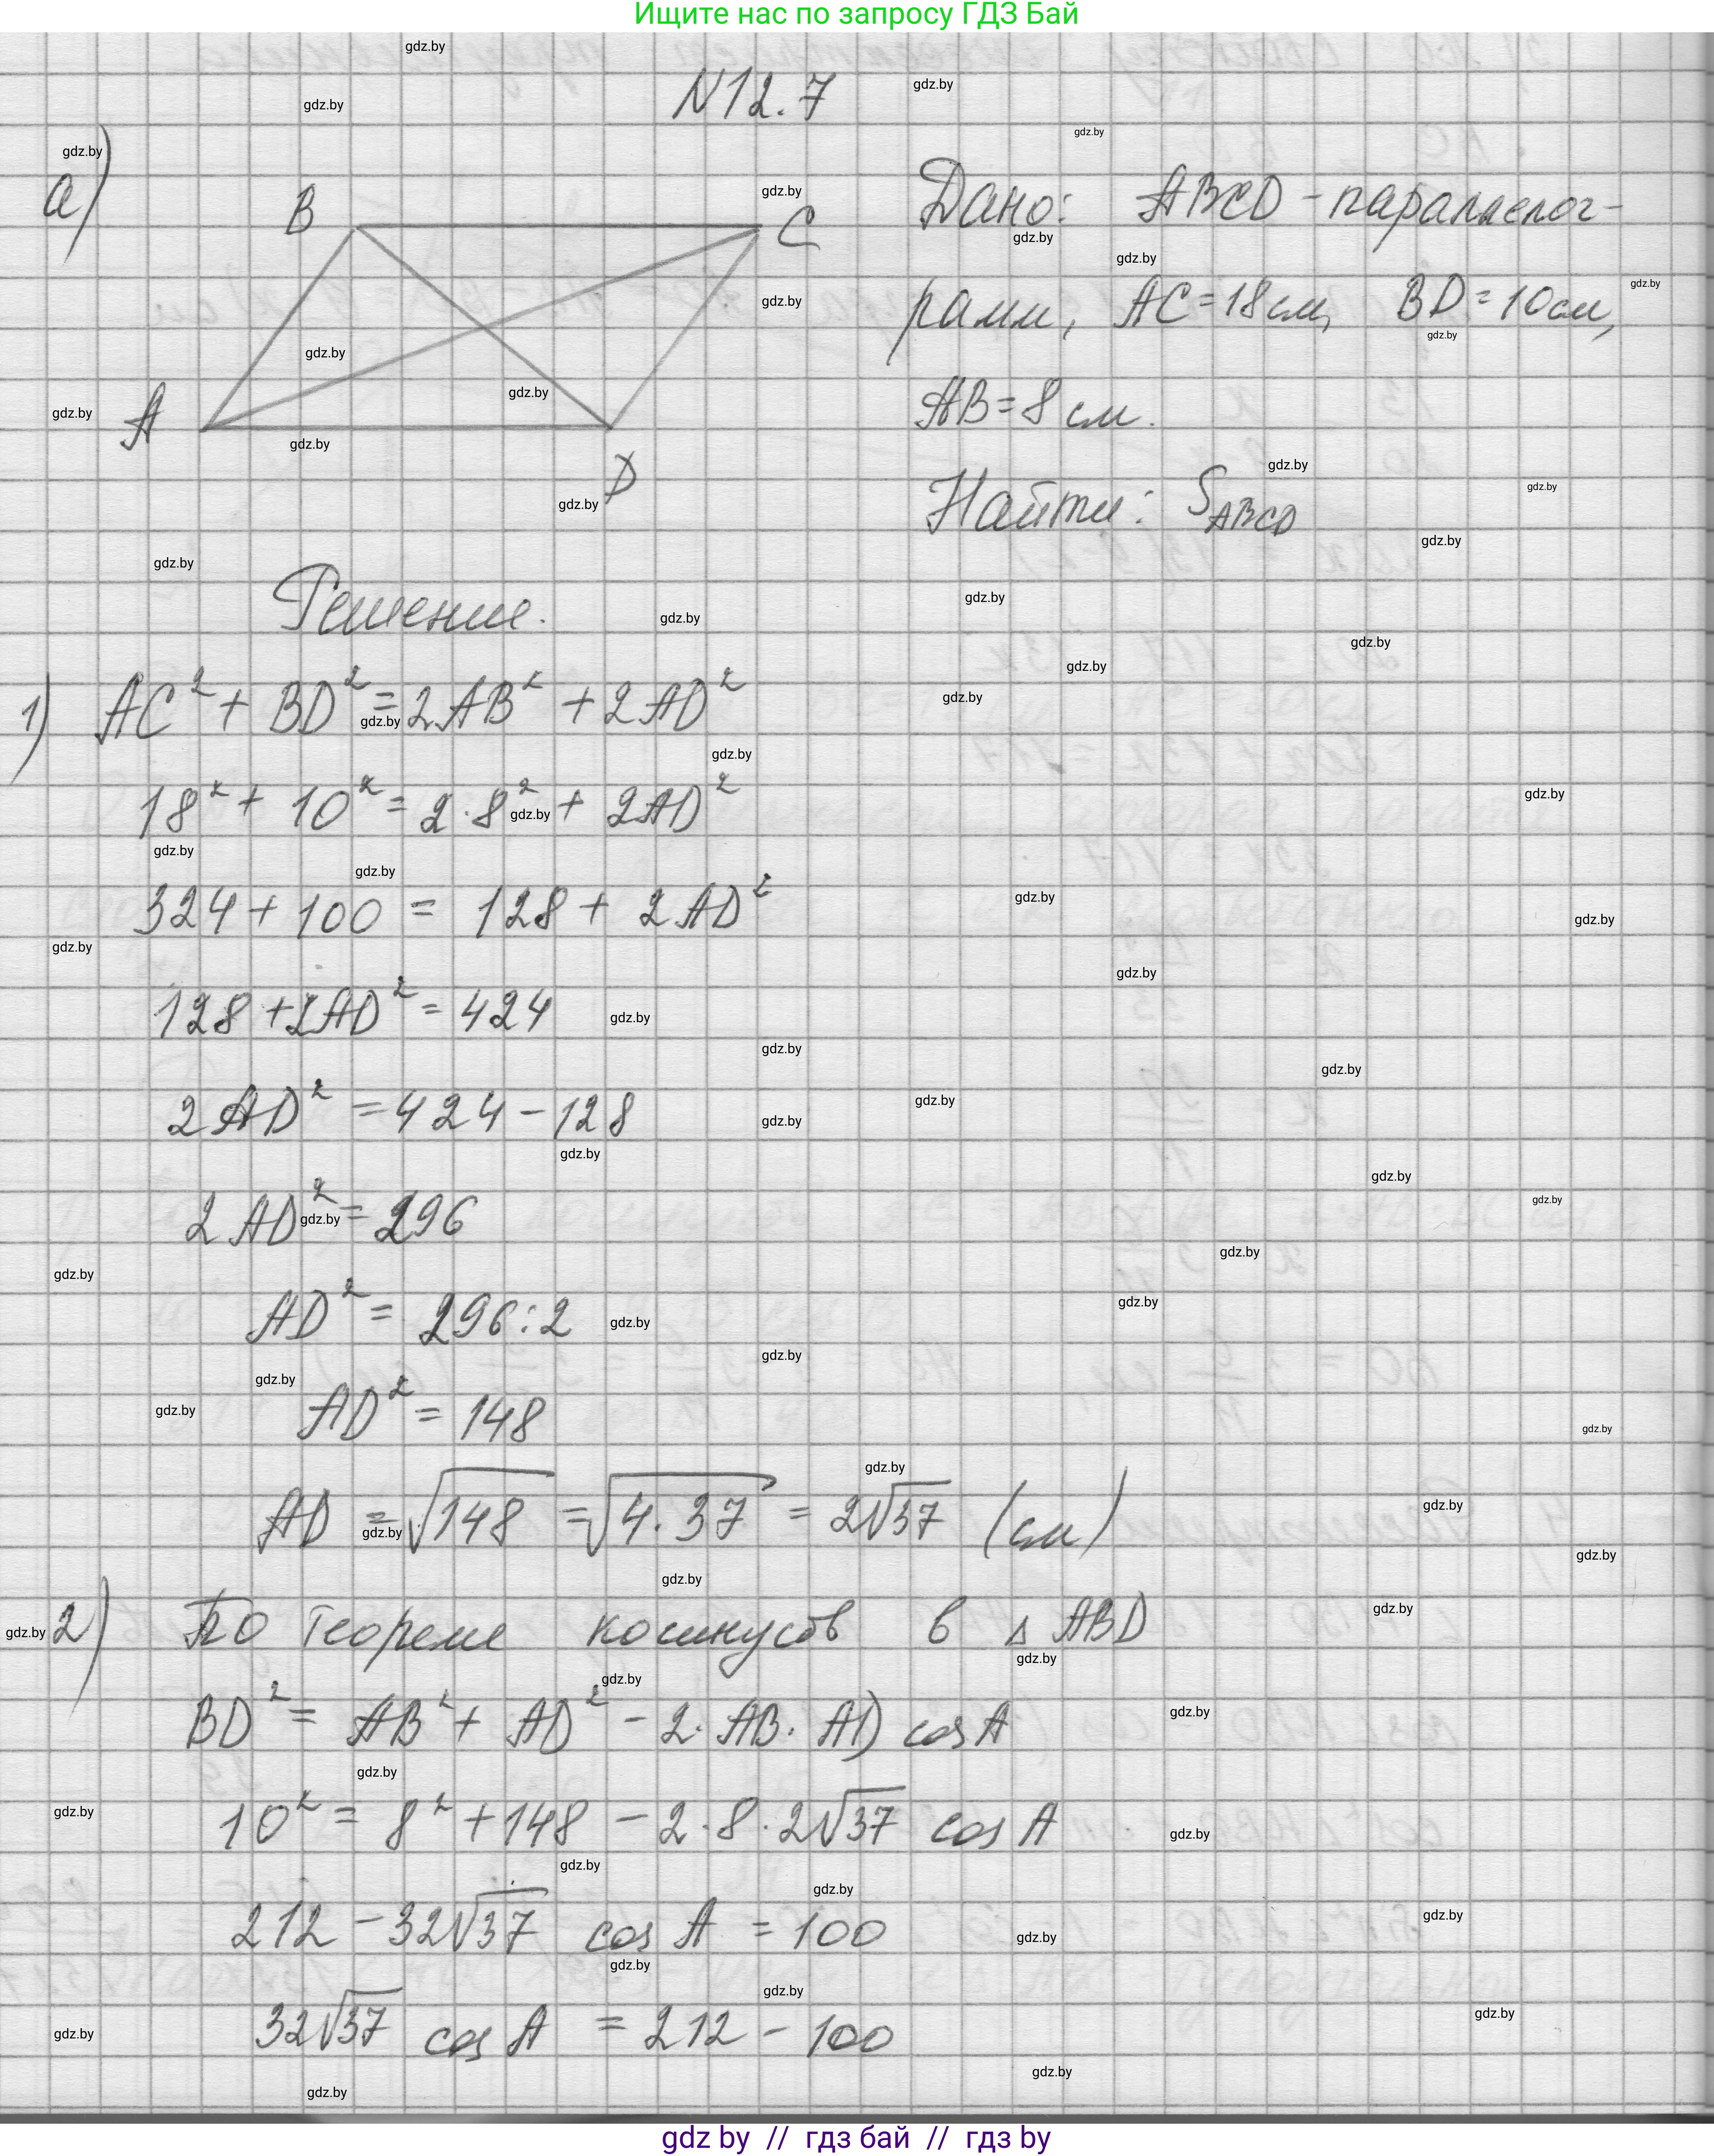 Ищите нас по запросу ГДЗ Бай
N12.7
а)
B
C
A
D
Дано: ABCD - параллелог-
рамм, AC = 18 см, BD = 10 см,
AB = 8 см.
Найти: S_ABCD
Решение.
1) AC² + BD² = 2AB² + 2AD²
18² + 10² = 2·8² + 2AD²
324 + 100 = 128 + 2AD²
128 + 2AD² = 424
2AD² = 424 - 128
2AD² = 296
AD² = 296 : 2
AD² = 148
AD = √148 = √4·37 = 2√37 (см)
2) По теореме косинусов в △ABD
BD² = AB² + AD² - 2·AB·AD cos A
10² = 8² + 148 - 2·8·2√37 cos A
212 - 32√37 cos A = 100
32√37 cos A = 212 - 100
gdz by // гдз бай // гдз by